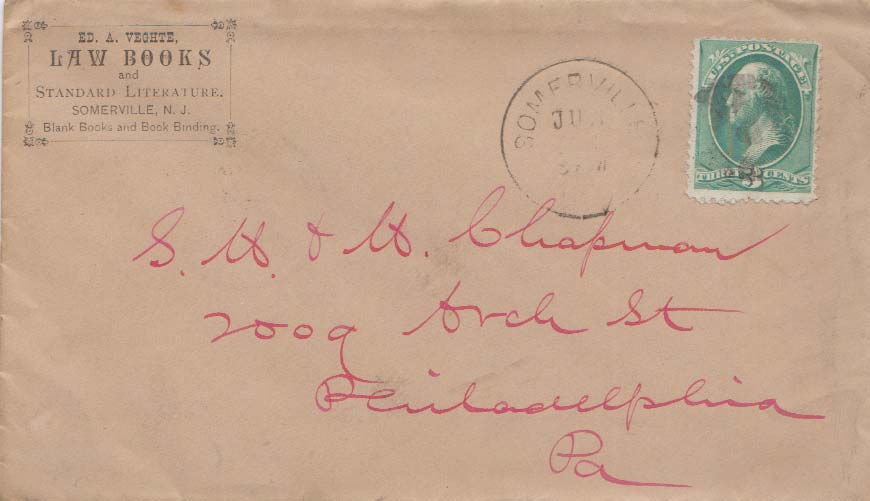 ED. A. VEGHTE,
LAW BOOKS
and
STANDARD LITERATURE.
SOMERVILLE, N. J.
Blank Books and Book Binding.
SOMERVILLE
U.S. POSTAGE
THREE 3 CENTS
S. H. & H. Chapman
2009 Arch St
Philadelphia
Pa